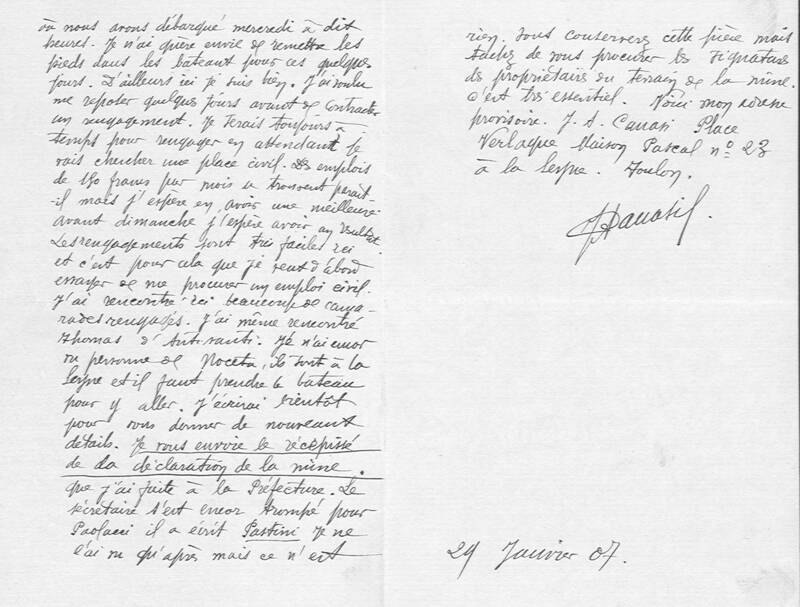 où nous avons débarqué mercredi à dit
heures. Je n'ai guère envie de remettre les
pieds dans les bateaux pour ces quelques
jours. D'ailleurs ici je suis bien. J'ai voulu
me reposer quelques jours avant de contracter
un rengagement. Je serais toujours à
temps pour rengager en attendant je
vais chercher une place civil. Des emplois
de 150 francs par mois se trouvent parait-
il mais j'espère en avoir une meilleure
avant dimanche j'espère avoir un résultat.
Les rengagements sont très faciles ici
et c'est pour cela que je veut d'abord
essayer de me procurer un emploi civil.
J'ai rencontré ici beaucoup de cama-
rades rengagés. J'ai même rencontré
Thomas d'Antisanti. Je n'ai encor
vu personne de Noceta, ils sont à la
Seyne et il faut prendre le bateau
pour y aller. J'écrirai bientôt
pour vous donner de nouveaux
détails. Je vous envoie le récépissé
de la déclaration de la mine.
que j'ai faite à la Préfecture. Le
sécrétaire s'est encor trompé pour
Paolacci il a écrit Pastini je ne
l'ai vu qu'après mais ce n'est
rien. Vous conserverez cette pièce mais
tachez de vous procurer les signatures
des propriétaires du terrain de la mine.
c'est très essentiel. Voici mon adresse
provisoire. J. A. Canasi Place
Verlaque Maison Pascal n° 23
à la Seyne. Toulon.
29 Janvier 07.